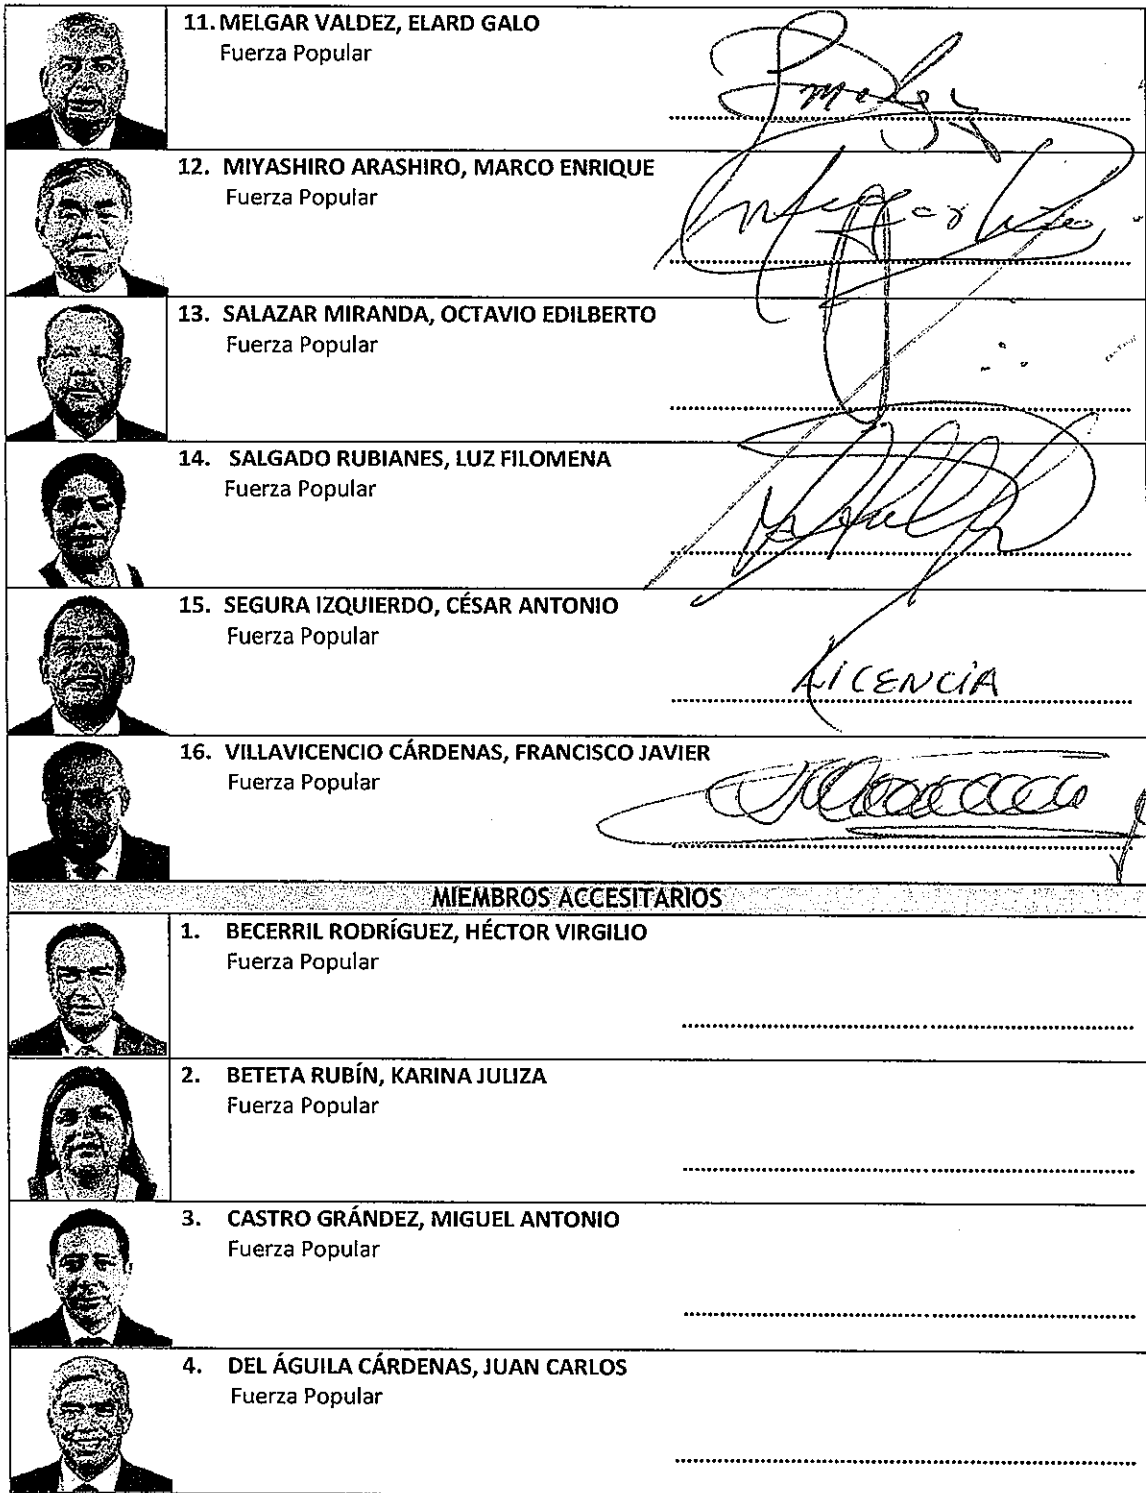 11. MELGAR VALDEZ, ELARD GALO
Fuerza Popular
12. MIYASHIRO ARASHIRO, MARCO ENRIQUE
Fuerza Popular
13. SALAZAR MIRANDA, OCTAVIO EDILBERTO
Fuerza Popular
14. SALGADO RUBIANES, LUZ FILOMENA
Fuerza Popular
15. SEGURA IZQUIERDO, CÉSAR ANTONIO
Fuerza Popular
LICENCIA
16. VILLAVICENCIO CÁRDENAS, FRANCISCO JAVIER
Fuerza Popular
MIEMBROS ACCESITARIOS
1. BECERRIL RODRÍGUEZ, HÉCTOR VIRGILIO
Fuerza Popular
2. BETETA RUBÍN, KARINA JULIZA
Fuerza Popular
3. CASTRO GRÁNDEZ, MIGUEL ANTONIO
Fuerza Popular
4. DEL ÁGUILA CÁRDENAS, JUAN CARLOS
Fuerza Popular